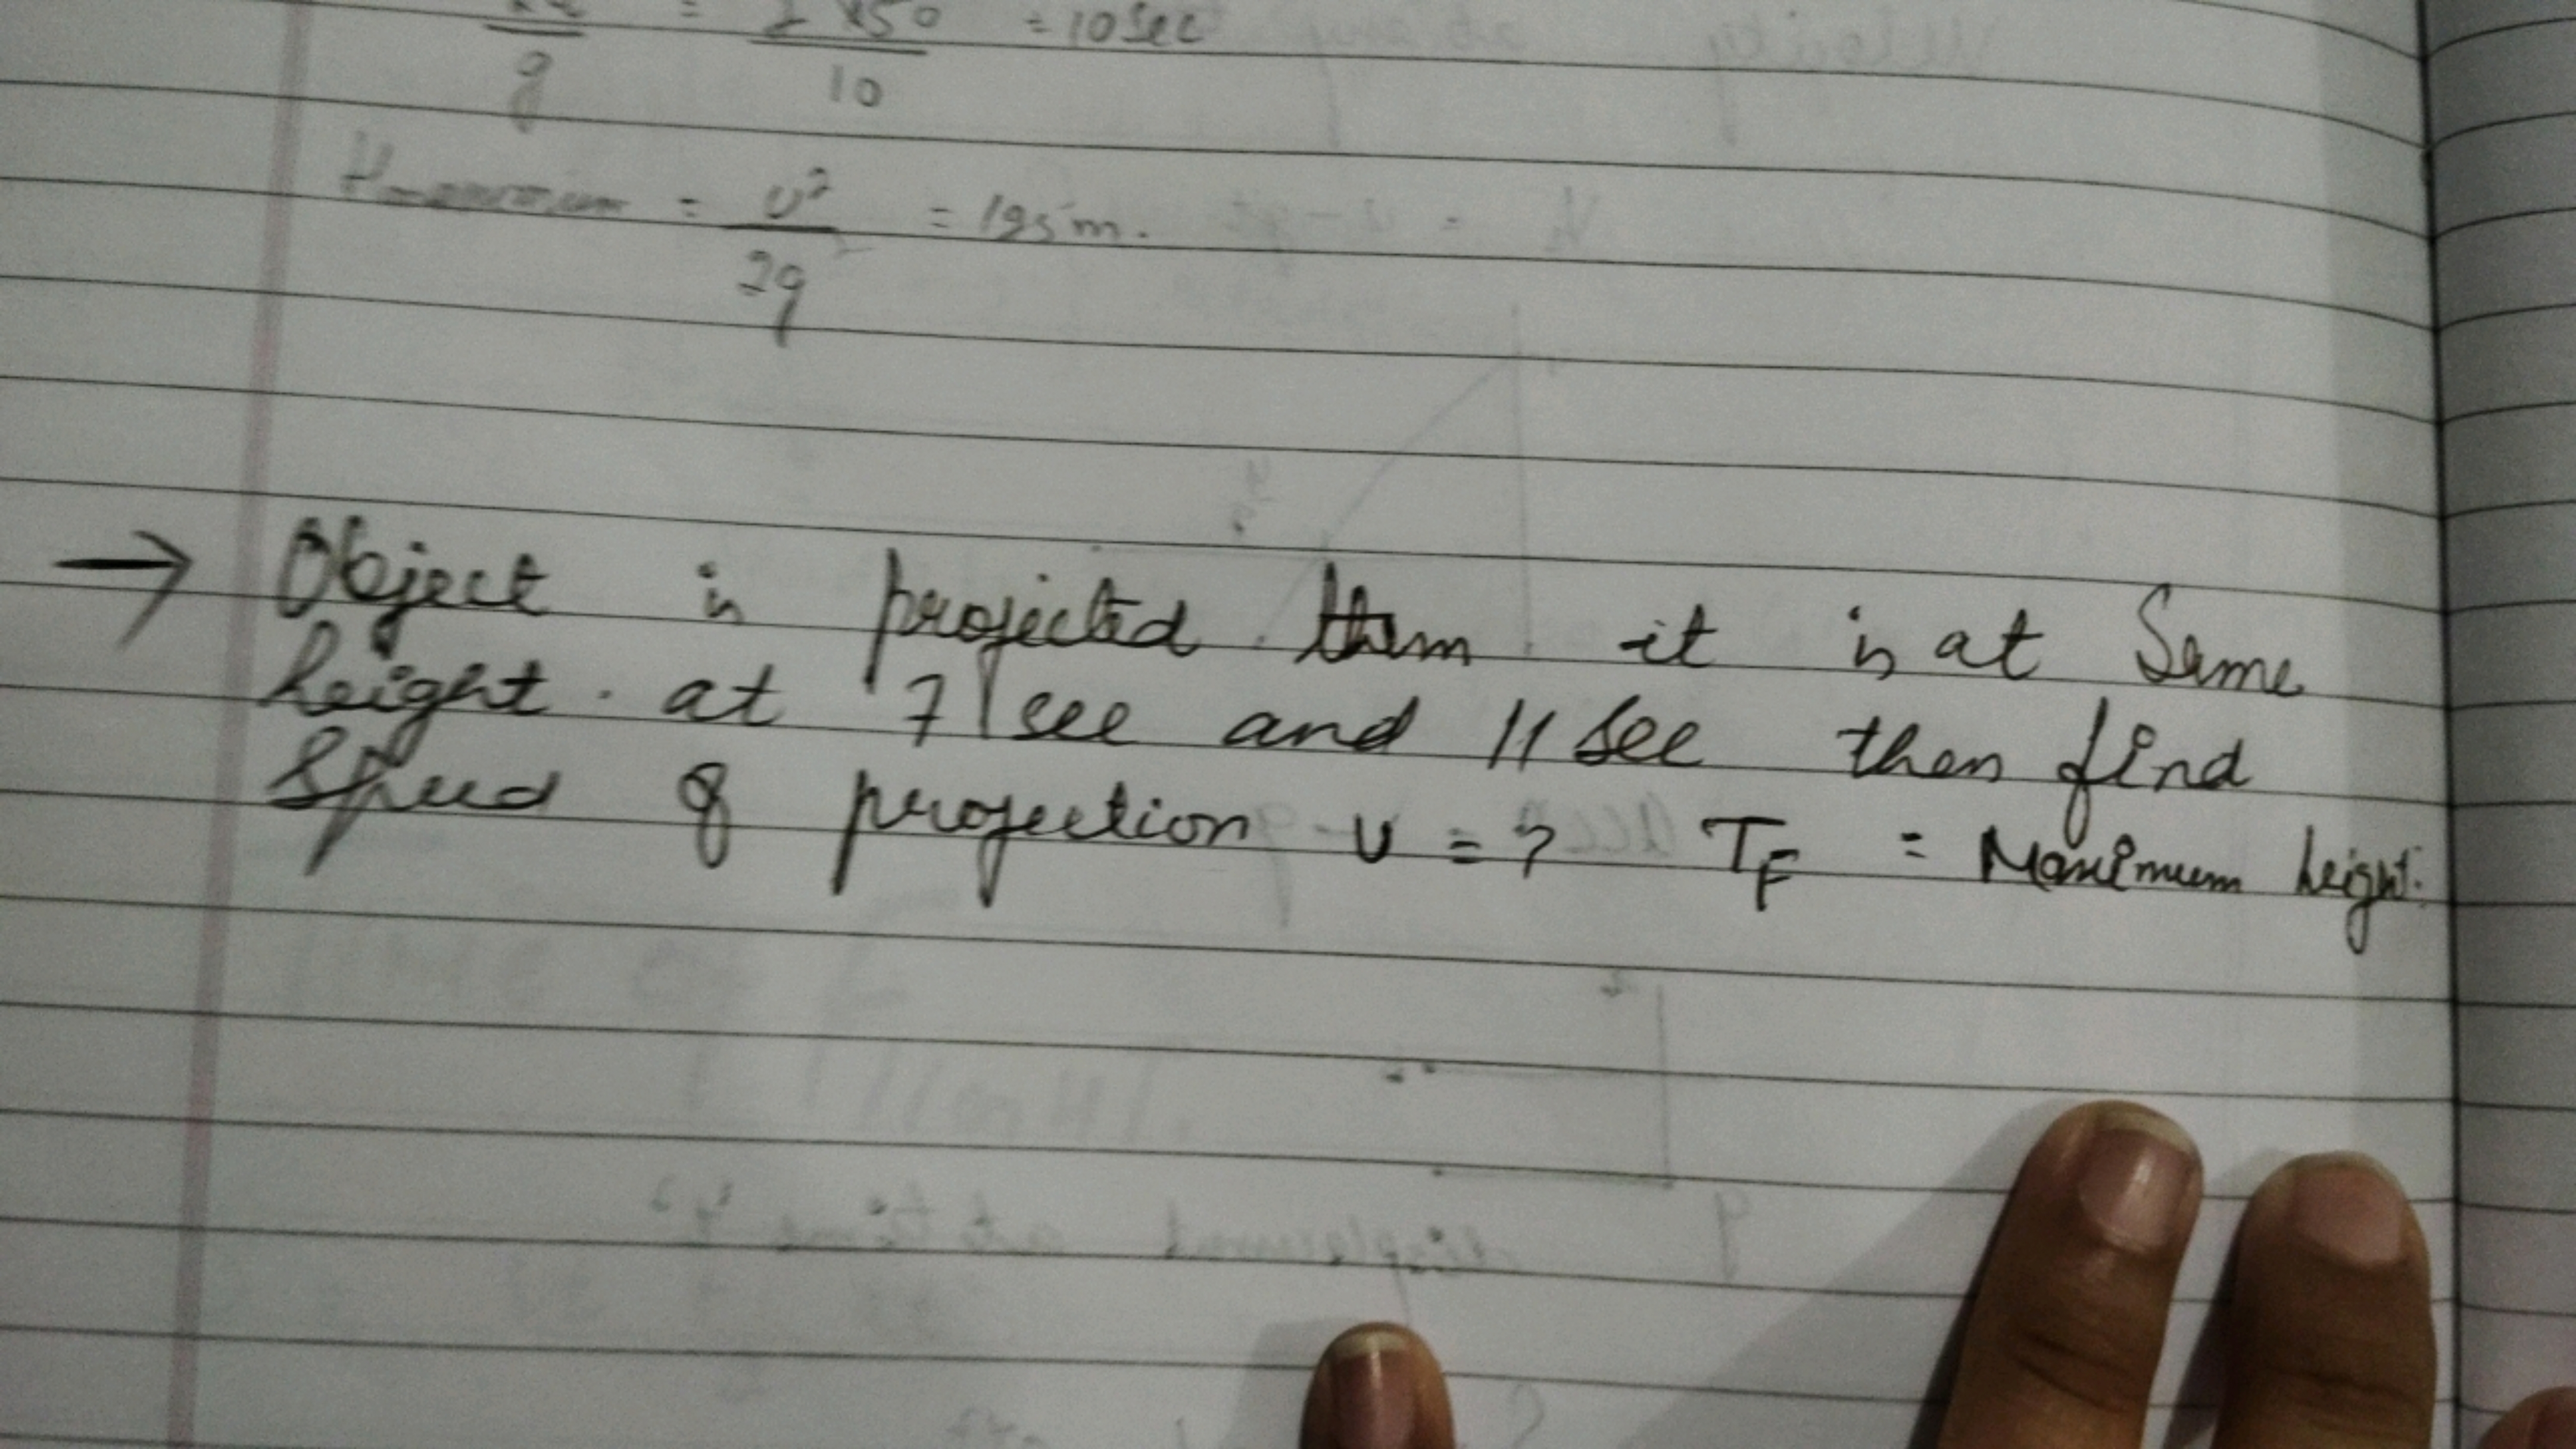 g = 2 x 50 / 10 = 10 sec
Hmaximum = u² / 2g = 125 m.
→ Object is projected then it is at Same
height . at 7 sec and 11 sec then find
Speed of projection u = ? TF = Maximum height.